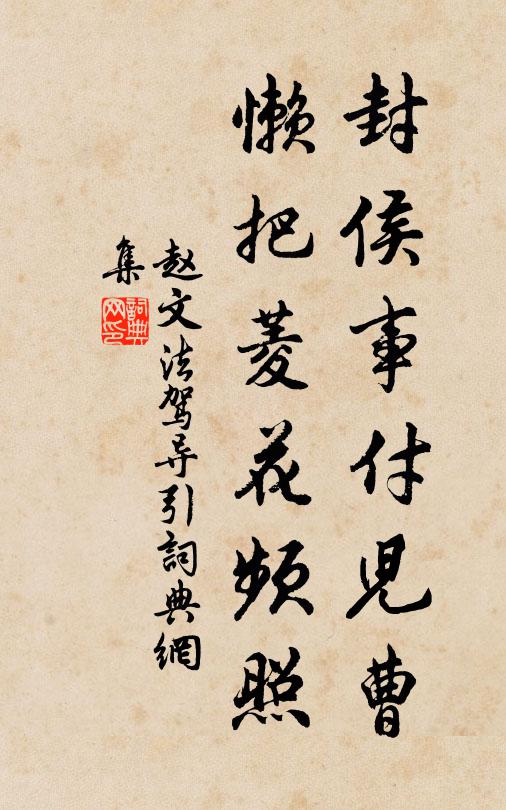 封侯事付兒曹
懒把菱花频照
赵文法驾导引詞典網
集
詞典
网印